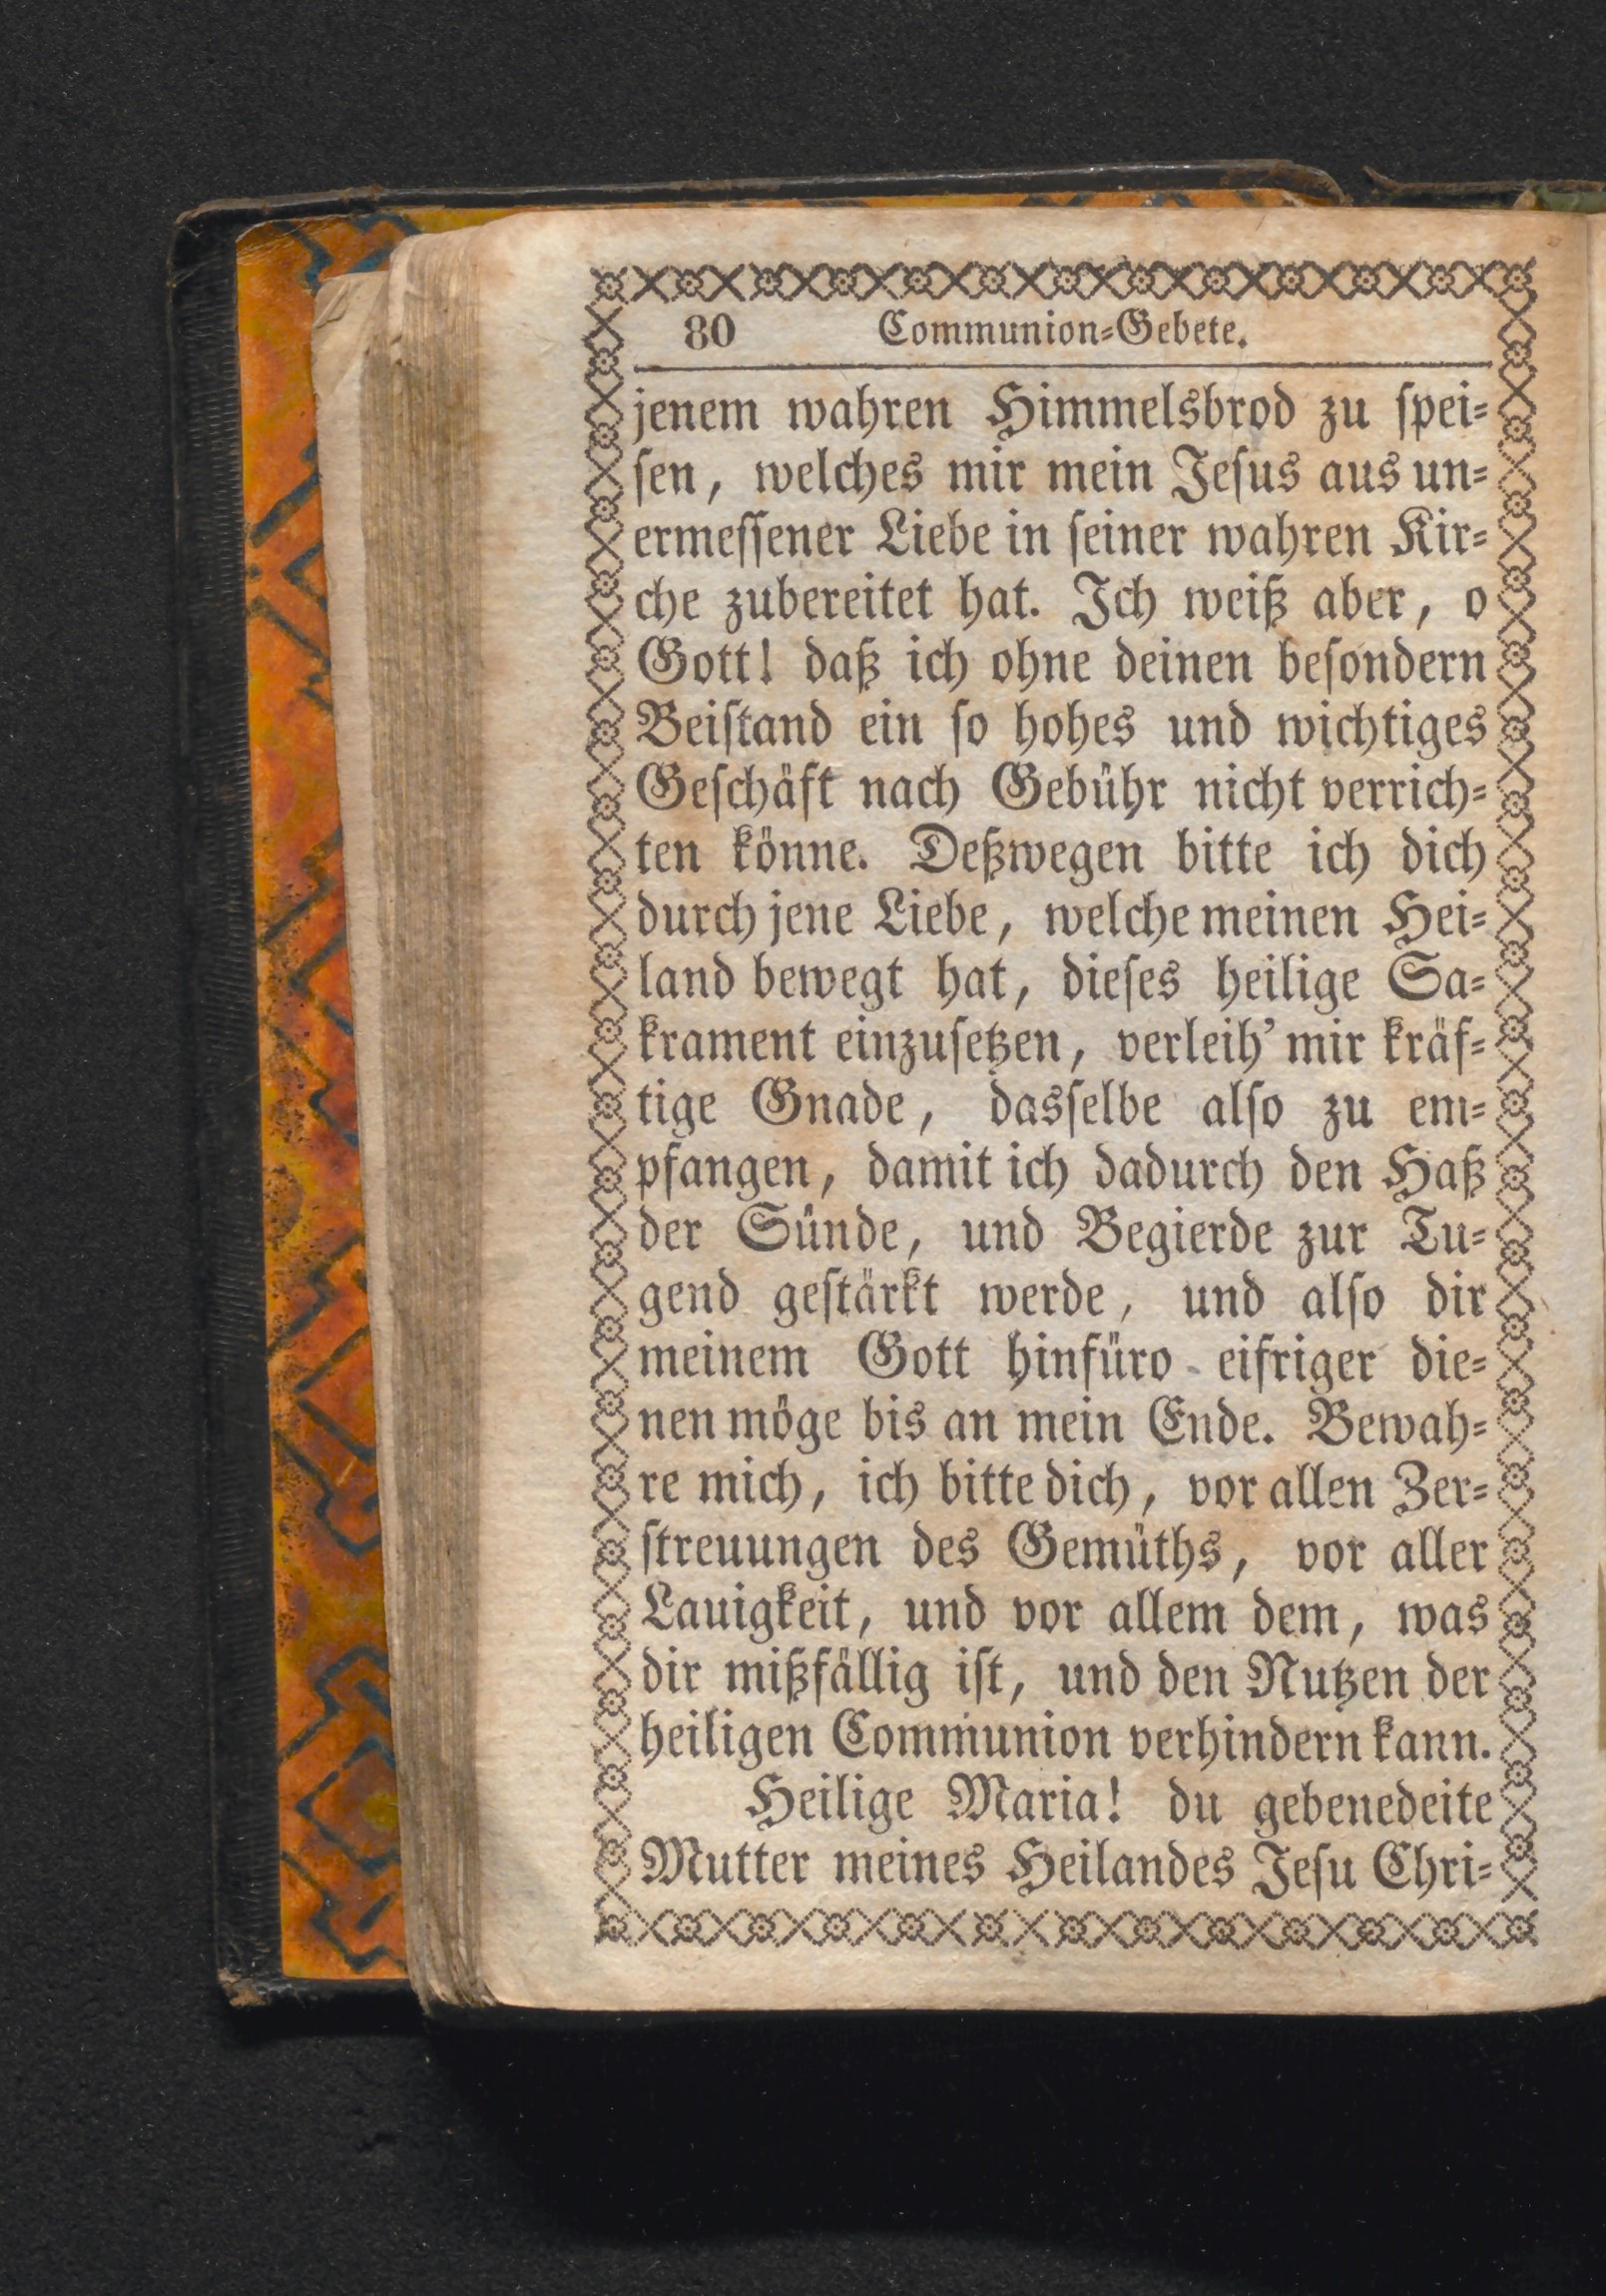 80 Communion=Gebete.
jenem wahren Himmelsbrod zu ſpei=
ſen, welches mir mein Jeſus aus un=
ermeſſener Liebe in ſeiner wahren Kir=
che zubereitet hat. Ich weiß aber, o
Gott! daß ich ohne deinen beſondern
Beiſtand ein ſo hohes und wichtiges
Geſchäft nach Gebühr nicht verrich=
ten könne. Deßwegen bitte ich dich
durch jene Liebe, welche meinen Hei=
land bewegt hat, dieſes heilige Sa=
krament einzuſetzen, verleih’ mir kräf=
tige Gnade, dasſelbe alſo zu em=
pfangen, damit ich dadurch den Haß
der Sünde, und Begierde zur Tu=
gend geſtärkt werde, und alſo dir
meinem Gott hinfüro eifriger die=
nen möge bis an mein Ende. Bewah=
re mich, ich bitte dich, vor allen Zer=
ſtreuungen des Gemüths, vor aller
Lauigkeit, und vor allem dem, was
dir mißfällig iſt, und den Nutzen der
heiligen Communion verhindern kann.
Heilige Maria! du gebenedeite
Mutter meines Heilandes Jeſu Chri=